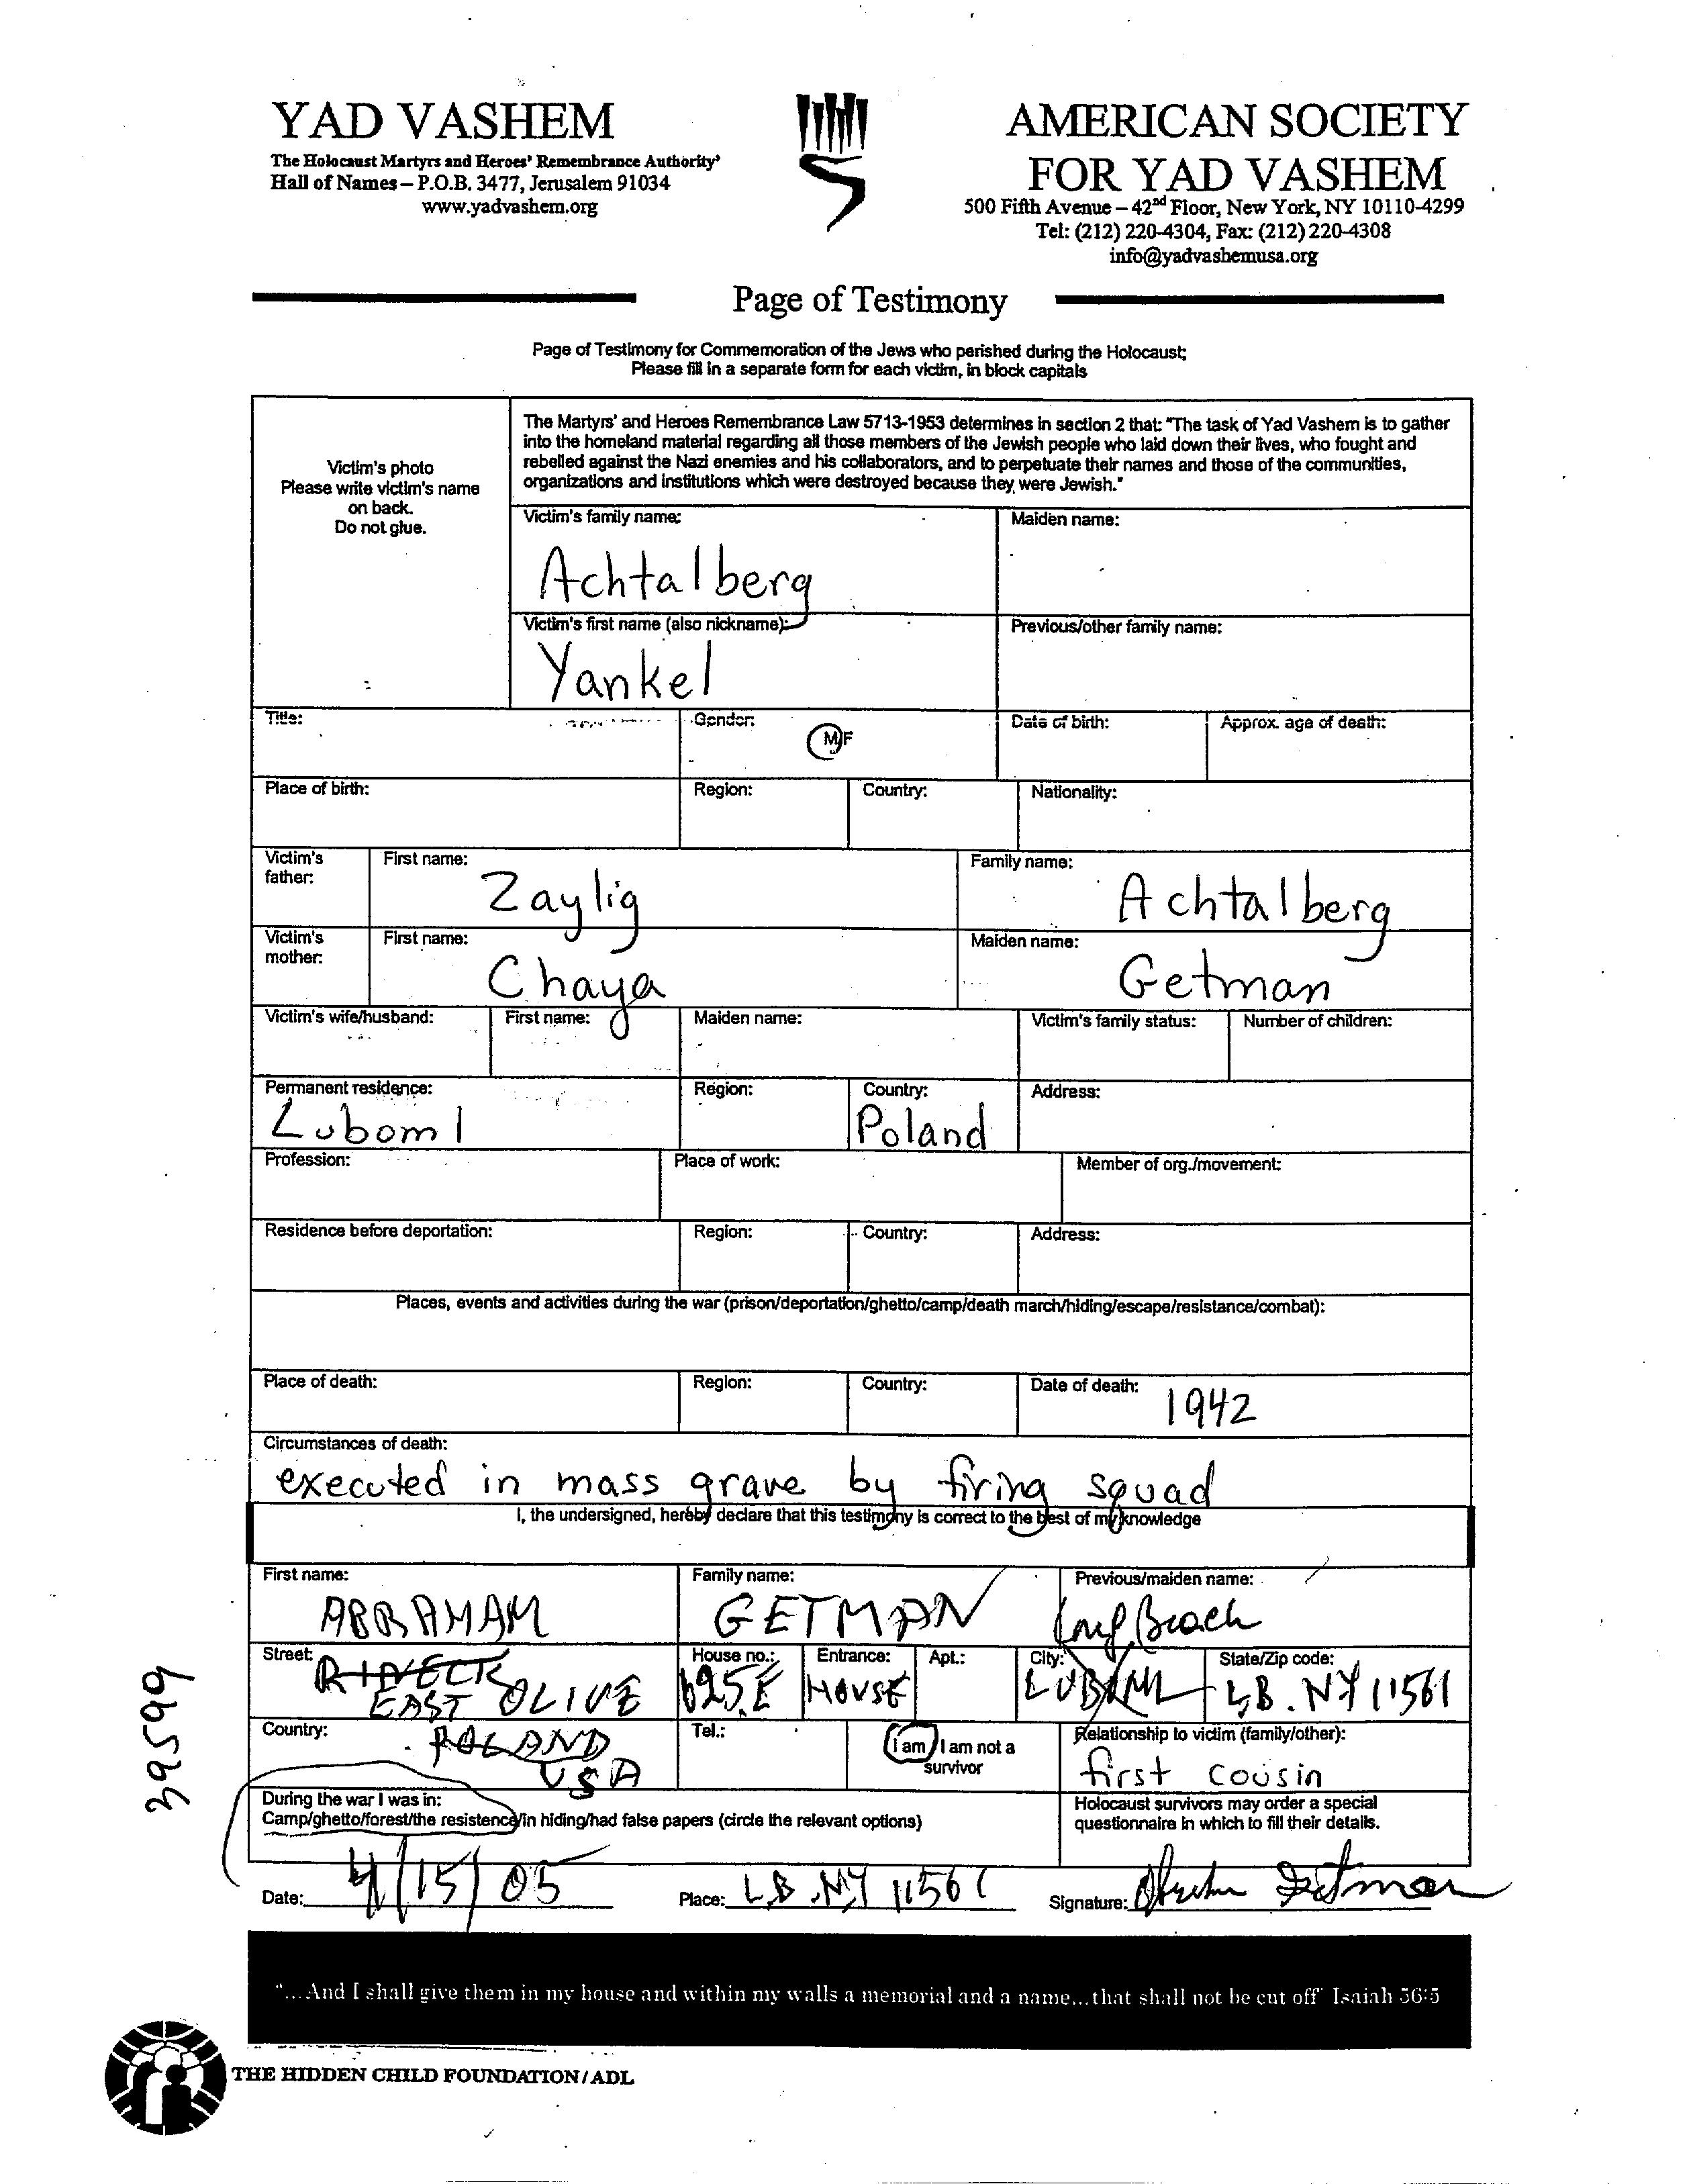 YAD VASHEM
The Holocaust Martyrs and Heroes' Remembrance Authority'
Hall of Names – P.O.B. 3477, Jerusalem 91034
www.yadvashem.org
AMERICAN SOCIETY
FOR YAD VASHEM
500 Fifth Avenue – 42nd Floor, New York, NY 10110-4299
Tel: (212) 220-4304, Fax: (212) 220-4308
info@yadvashemusa.org
Page of Testimony
Page of Testimony for Commemoration of the Jews who perished during the Holocaust;
Please fill in a separate form for each victim, in block capitals
Victim's photo
Please write victim's name
on back.
Do not glue.
The Martyrs' and Heroes Remembrance Law 5713-1953 determines in section 2 that: "The task of Yad Vashem is to gather
into the homeland material regarding all those members of the Jewish people who laid down their lives, who fought and
rebelled against the Nazi enemies and his collaborators, and to perpetuate their names and those of the communities,
organizations and institutions which were destroyed because they were Jewish."
Victim's family name: Maiden name:
Achtalberg
Victim's first name (also nickname): Previous/other family name:
Yankel
Title: Gender: M/F Date of birth: Approx. age of death:
Place of birth: Region: Country: Nationality:
Victim's father: First name: Zaylig Family name: Achtalberg
Victim's mother: First name: Chaya Maiden name: Getman
Victim's wife/husband: First name: Maiden name: Victim's family status: Number of children:
Permanent residence: Region: Country: Address:
Luboml Poland
Profession: Place of work: Member of org./movement:
Residence before deportation: Region: Country: Address:
Places, events and activities during the war (prison/deportation/ghetto/camp/death march/hiding/escape/resistance/combat):
Place of death: Region: Country: Date of death: 1942
Circumstances of death:
executed in mass grave by firing squad
I, the undersigned, hereby declare that this testimony is correct to the best of my knowledge
First name: Family name: Previous/maiden name:
ABRAHAM GETMAN Long Beach
Street: House no.: Entrance: Apt.: City: State/Zip code:
EAST OLIVE 625E HOUSE LUBOML L.B. NY 11561
Country: Tel.: I am / I am not a survivor Relationship to victim (family/other):
POLAND
USA first cousin
During the war I was in:
Camp/ghetto/forest/the resistence/in hiding/had false papers (circle the relevant options)
Holocaust survivors may order a special
questionnaire in which to fill their details.
Date: 4/15/05 Place: L.B. NY 11561 Signature: Getman
"...And I shall give them in my house and within my walls a memorial and a name...that shall not be cut off" Isaiah 56:5
THE HIDDEN CHILD FOUNDATION/ADL
39599